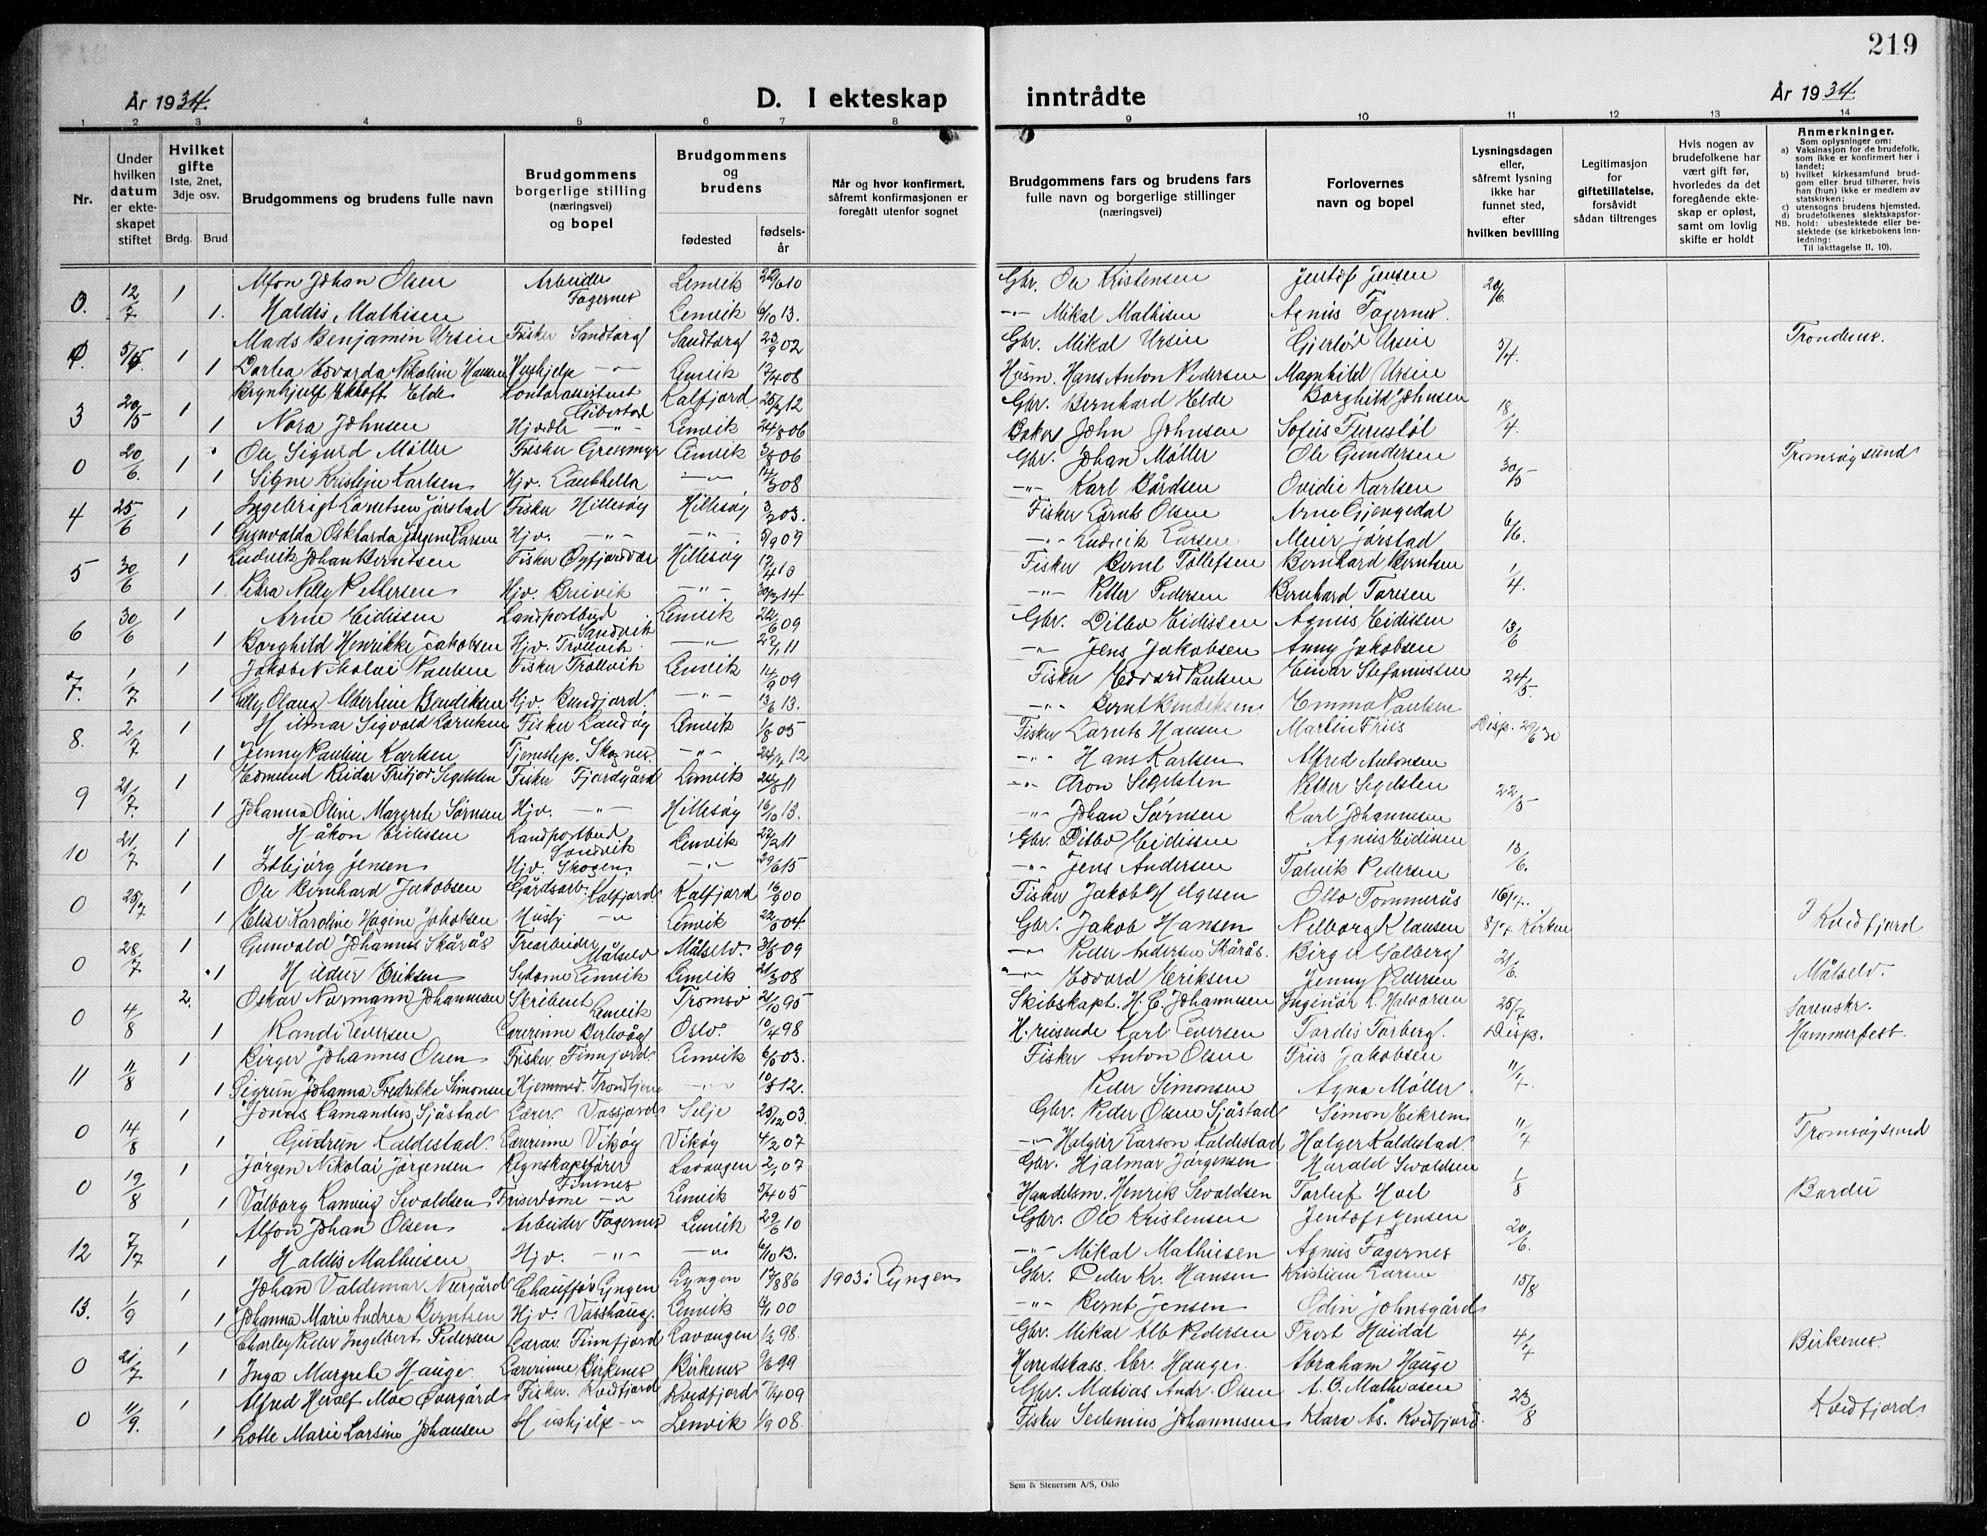 219
År 1934.
D. I ekteskap inntrådte
År 1934
1 2 3 4 5 6 7 8 9 10 11 12 13 14
Nr.
Under hvilken datum er ekteskapet stiftet
Hvilket gifte
1ste, 2net, 3dje osv.
Brdg. Brud
Brudgommens og brudens fulle navn
Brudgommens borgerlige stilling (næringsvei) og bopel
Brudgommens og brudens
fødested
fødselsår
Når og hvor konfirmert, såfremt konfirmasjonen er foregått utenfor sognet
Brudgommens fars og brudens fars fulle navn og borgerlige stillinger (næringsvei)
Forlovernes navn og bopel
Lysningsdagen eller, såfremt lysning ikke har funnet sted, efter hvilken bevilling
Legitimasjon for giftetillatelse, forsåvidt sådan tiltrenges
Hvis nogen av brudefolkene har vært gift før, hvorledes da det foregående ekteskap er opløst, samt om lovlig skifte er holdt
Anmerkninger.
Som oplysninger om:
a) Vaksinasjon for de brudefolk, som ikke er konfirmert her i landet;
b) hvilket kirkesamfund brudgom eller brud tilhører, hvis han (hun) ikke er medlem av statskirken;
c) utensogns brudens hjemsted.
d) brudefolkenes slektskapsforhold: ubeslektede eller beslektede (se kirkebokens innledning:
NB.
Til iakttagelse II, 10).
0. 12/7 1 Alfon Johan Olsen Arbeider Fagernes Lenvik 29/6 10 Gbr. Ole Kristensen Jentof Jensen 20/6
1. Haldis Mathisen Lenvik 6/10 13. -"- Mikal Mathisen Agnus Fagernes.
5/5 1 Mads Benjamin Ursin Fisker Sandtorg Sandtorg 23/9 02 Gbr. Mikal Ursin Gjertof Ursin 3/4 Trondenes.
1 Dortea Edvarda Nikoline Hansen Hushjelp -"- Lenvik 12/4 08 Husm. Hans Anton Pedersen Magnhild Ursin
3 20/5 1 Brynhjulf Ekhoft Elde Kontorassistent Gibostad Kalfjord. 25/2 12 Gbr. Bernhard Elde Borghild Johnsen 18/4
1 Nora Johnsen Hjvdtr -"- Lenvik 24/8 06 Baker John Johnsen Sofus Furustøl
0 20/6 1 Ole Sigurd Møller Fisker Grasmyr Lenvik 3/8 06 Gbr. Johan Møller Ole Gundersen 30/5 Tromsøysund
1 Signe Kristine Karlsen Hjv. Laukhella -"- 14/3 08 -"- Karl Bårdsen Ovidie Karlsen
4 25/6 1 Ingebrigt Lorntsen Jørstad Fisker Hillesøy Hillesøy 3/2 03. Fisker Lornts Olsen Arne Gjengedal 6/6.
1 Gunvalda Osktarda Jørgine Larsen Hjv. -"- -"- 5/9 09 -"- Ludvik Larsen Meier Jørstad
5 30/6 1 Ludvik Johan Berntsen Fisker Øyfjordvær Hillesøy 17/4 10 Fisker Bernt Tollefsen Bernhard Berntsen 1/4
1. Petra Nelly Pettersen Hjv. Breivik -"- 30/3 14 -"- Petter Pedersen Bernhard Toresen
6 30/6 1 Arne Eidissen Landpostbud Sandvik Lenvik 22/6 09 Gbr. Ditlev Eidissen Agnus Eidissen 13/6
1 Borghild Henrikke Jakobsen Hjv. Trollvik -"- 22/1 11 -"- Jens Jakobsen Anny Jakobsen
7. 1/7 1 Jakob Nikolai Paulsen Fisker Trollvik Lenvik 14/9 09 Fisker Edvard Paulsen Einar Stefanussen 24/5
1 Elly Olaug Albertine Bendiksen Hjv. Bundjord -"- 13/6 13. -"- Bernt Bendiksen. Emma Paulsen
8. 2/7 1 Hilmar Sigvald Lorntsen Fisker Sandøy Lenvik 1/8 05 Fisker Lornts Hansen Martin Friis Disp. 29/6 30
1 Jenny Pauline Karlsen Tjenestep. Skognes -"- 24/7 12 -"- Hans Karlsen Alfred Antonsen
9 21/7. 1 Edmund Reidar Fritjov Segelsten Fisker Fjordgård Lenvik 26/8 11 -"- Aron Segelsten Petter Segelsten 22/5
1 Johanna Oline Margrete Sørnsen Hjv. -"- Hillesøy 16/10 13. -"- Johan Sørnsen Karl Johannesen
10 21/7 1 Håkon Eidissen Landpostbud Sandvik Lenvik 22/2 11 Gbr. Ditlev Eidissen Agnus Eidissen 13/6.
1 Esbjørg Jensen Hjv. Skogen -"- 29/6 15 -"- Jens Andersen Talvik Pedersen
0 25/7 1 Ole Bernhard Jakobsen Gårdsarb. Kalfjord Kalfjord 16/9 00 Fisker Jakob Helgesen Otto Tommerås 16/7.
1 Elise Karoline Hagene Jakobsen Husbj -"- Lenvik 22/5 04. Gbr. Jakob Hansen Nelborg Klausen 8/7 Kirken I Kvedfjord
0 28/7 1 Gunvald Johannes Skårås Trearbeider Målselv Målselv. 31/5 09 -"- Peder Andersen Skårås. Birger Solberg 21/6.
1 Hildur Eriksen Sydame Lenvik Lenvik 21/3 08 -"- Edvard Eriksen Jenny Pedersen Målselv.
0 4/8 2. Oskar Normann Johannesen Skribent Lenvik Tromsø 21/10 95 Skibskapt. H. C. Johannesen Ingeniør L. Halvorsen 25/7 Sørenskr.
1 Randi Eversen Lærerinne Berlevåg Oslo. 10/4 98 H. reisende Carl Eversen Tordis Torberg Disp. Hammerfest.
11 11/8 1 Birger Johannes Olsen Fisker Finnfjord Lenvik 6/6 03. Fisker Anton Olsen Friis Jakobsen 11/7.
1 Sigrun Johanna Fredrikke Simonsen Hjemmed. Trondtjen -"- 10/3 12. Peder Simonsen Agna Møller
0 14/8 1 Jonas Lamandus Sjåstad Lærer. Vassfjord Selje 25/12 03. Gbr. Peder Olsen Sjåstad Simon Eikrem 11/7 Tromsøysund
1 Gudrun Kaldestad. Lærerinne Vikøy Vikøy 4/2 07 -"- Holgeir Larson Kaldestad Holger Kaldestad.
0 19/8 1 Jørgen Nikolai Jørgensen Regnskapsfører Finnsnes Lavangen 2/1 07 Gbr. Hjalmar Jørgensen Harald Sivaldsen 1/8 Bardu
1 Valborg Lanvig Sivaldsen Friserdame -"- Lenvik 5/4 05 Handelsm. Henrik Sivaldsen Torleif Hoel
12 7/7 1 Alfon Johan Olsen Arbeider Fagernes Lenvik 29/6 10 Gbr. Ole Kristensen Jentof Jensen 20/6.
1 Haldis Mathisen Hjv. -"- -"- 6/10 13. -"- Mikal Mathisen Agnus Fagernes
13. 1/9 1 Johan Valdemar Nergård Chauffør Lyngen Lyngen 17/8 86 1903 i Lyngen Gbr. Peder Kr. Hansen Kristian Larsen 15/8
1 Johanna Marie Andrea Berntsen Hjv. Vasshaug. Lenvik 13/1 00 -"- Bernt Jensen Odin Johnsgård
0 21/7 1 Charley Peder Ingelbert Pedersen Lærer. Finnfjord Lavangen 1/2 98. Gbr. Mikal Alb Pedersen Trost Høidal 4/7 Birkenes.
1 Inga Margrete Hauge Lærerinne Birkenes Birkenes 9/6 99 Herredskass. Abr. Hauge Abraham Hauge
0 11/9. 1 Alfred Herolf Moe Overgård Fisker. Kvedfjord Kvedfjord 7/4 09 Gbr. Matias Andr. Olsen A. O. Mathiasen 23/8 Kvedfjord
1 Lotte Marie Larsine Johansen Hushjelp -"- Lenvik 1/9 08. Fisker Severinius Johannesen Klara Ås. Kvedfjord.
Sem & Stenersen A/S, Oslo